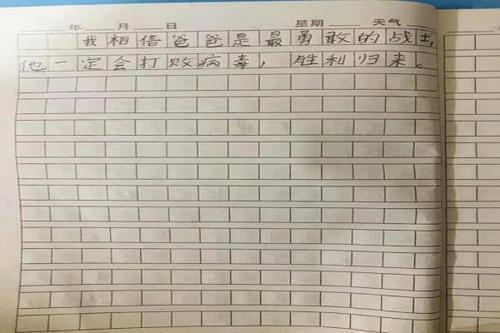 年 月 日 星期 天气
我相信爸爸是最勇敢的战士,
他一定会打败病毒,胜利归来。